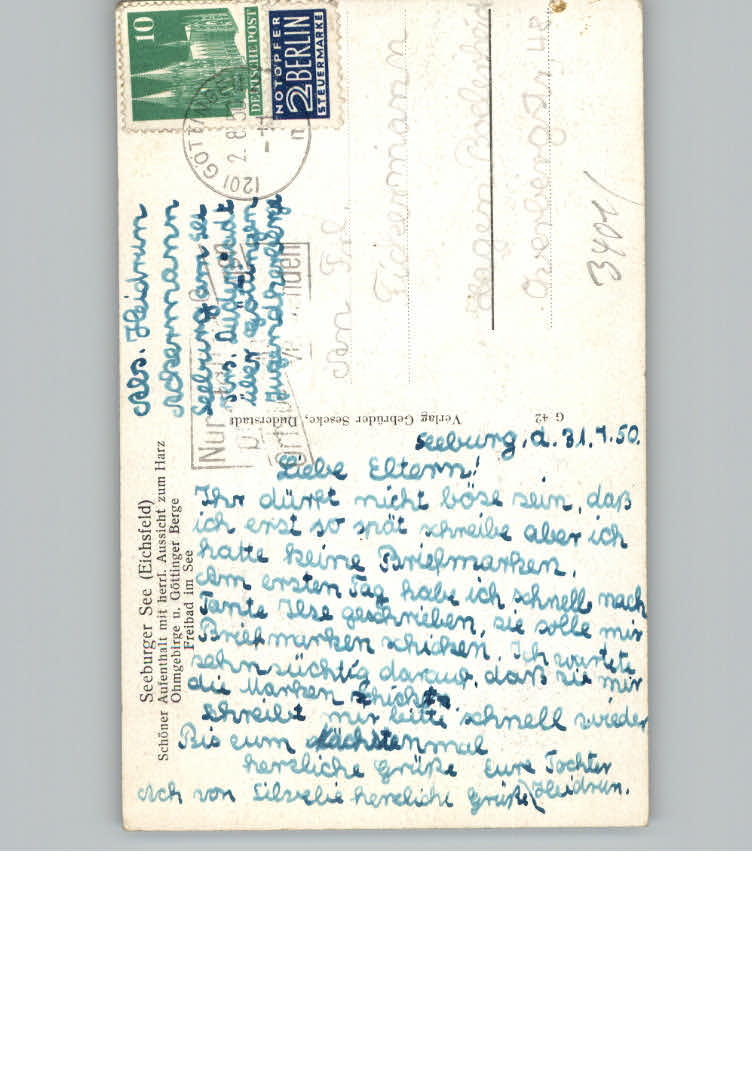 Seeburger See (Eichsfeld)
Schöner Aufenthalt mit herrl. Aussicht zum Harz
Ohmgebirge u. Göttinger Berge
Freibad im See
Abs. Heidrun
Ackermann
Seeburg am See
Krs. Duderstadt
über Göttingen
Jugendherberge
10
DEUTSCHE POST
NOTOPFER
2 BERLIN
STEUERMARKE
(20) GÖTTINGEN
2.8.50
Nur
An Frl.
Hagen
48
3401/
Verlag Gebrüder Seseke, Duderstadt
G 42
Seeburg, d. 31.7.50.
Liebe Eltern!
Ihr dürft nicht böse sein, daß
ich erst so spät schreibe aber ich
hatte keine Briefmarken.
Am ersten Tag habe ich schnell nach
Tante Ilse geschrieben, sie solle mir
Briefmarken schicken. Ich wartete
sehnsüchtig darauf, daß sie mir
die Marken schickt
Schreibt mir bitte schnell wieder
Bis zum nächstenmal
herzliche Grüße Eure Tochter
Heidrun.
Ach von herzliche Grüße